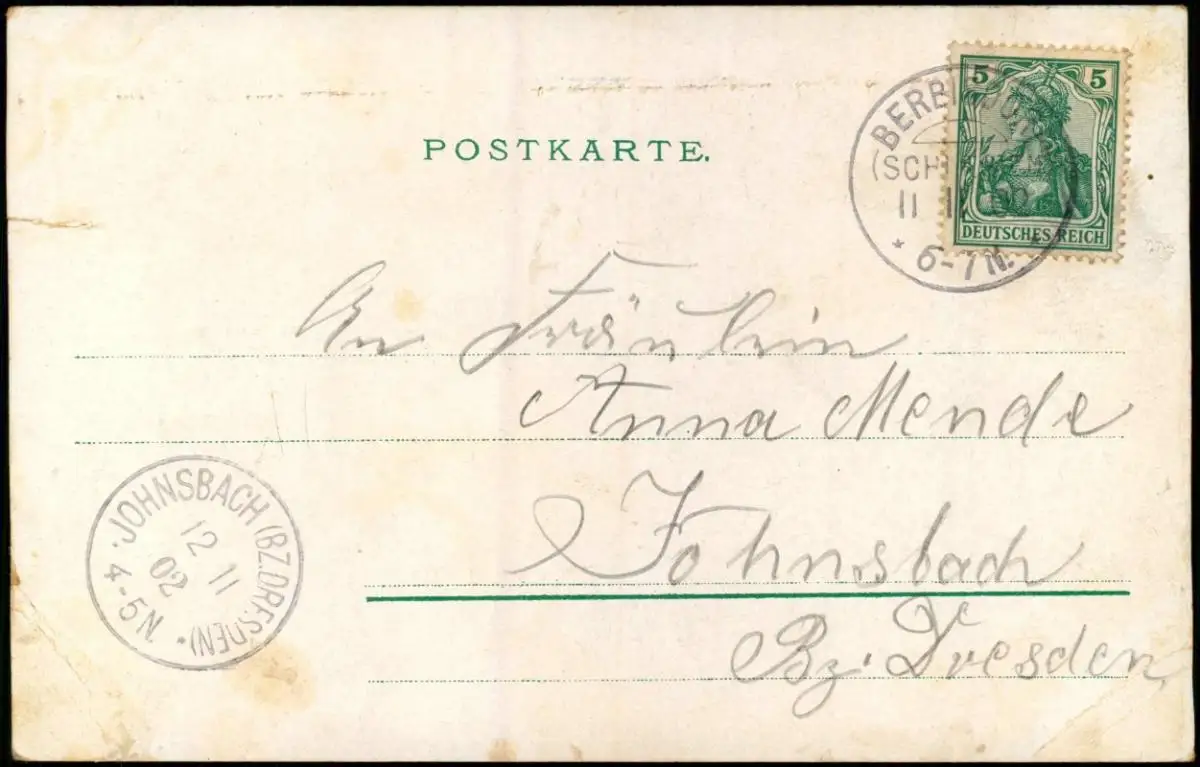 POSTKARTE.
5 5
DEUTSCHES REICH
11 11
* 6-7 N. *
An Fräulein
Anna Mende
Johnsbach
Bz. Dresden
JOHNSBACH (BZ. DRESDEN)
12 11
02
4-5N